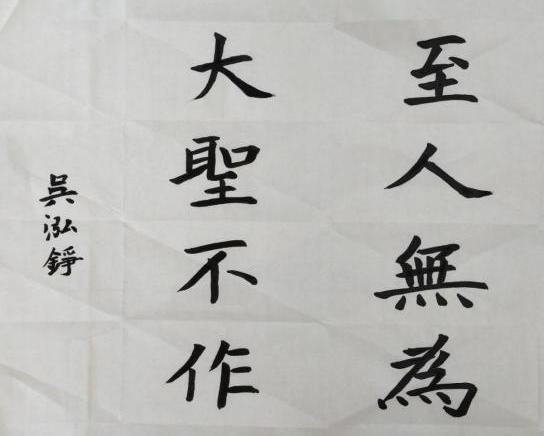 至人無為
大聖不作
吳泓錚